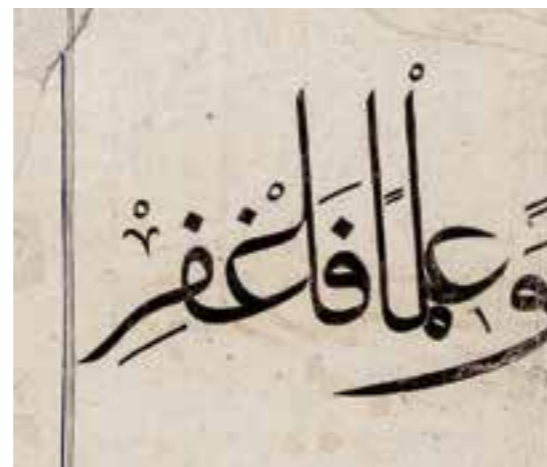 وَعِلْمًا فَاغْفِرْ